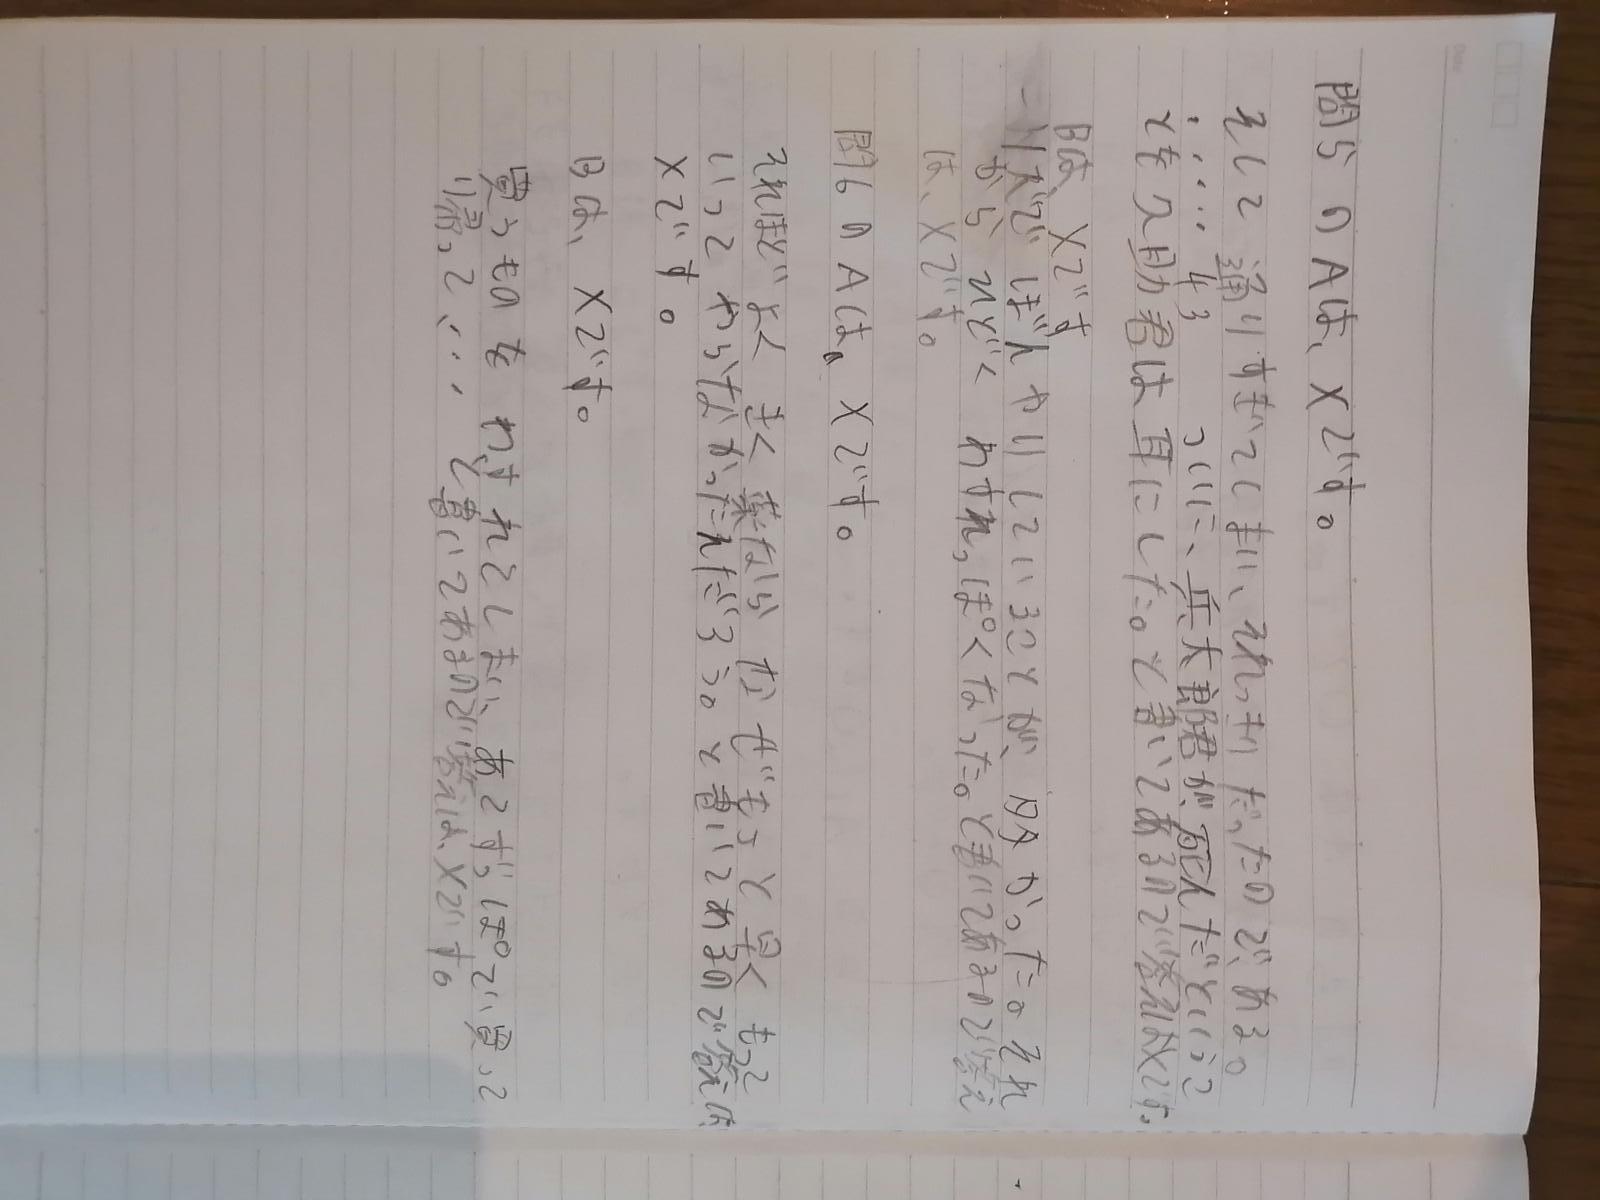 問5のAは、Xです。
そして通りすぎてしまい、それっきりだったのである。
・・・・43 ついに、兵太郎君が死んだというこ
とを久助君は耳にした。と書いてあるので答えはXです。
Bは、Xです
一人でぼんやりしていることが、多かった。それ
から ひどく わすれっぽくなった。と書いてあるので答え
は、Xです。
問6のAは、Xです。
それほどよく きく薬なら なぜもっと早く もって
いって やらなかったんだろう。と書いてあるので答えは、
Xです。
Bは、Xです。
買うものを わすれてしまい、あてずっぽで買って
り帰って、・・・と書いてあるので答えは、Xです。